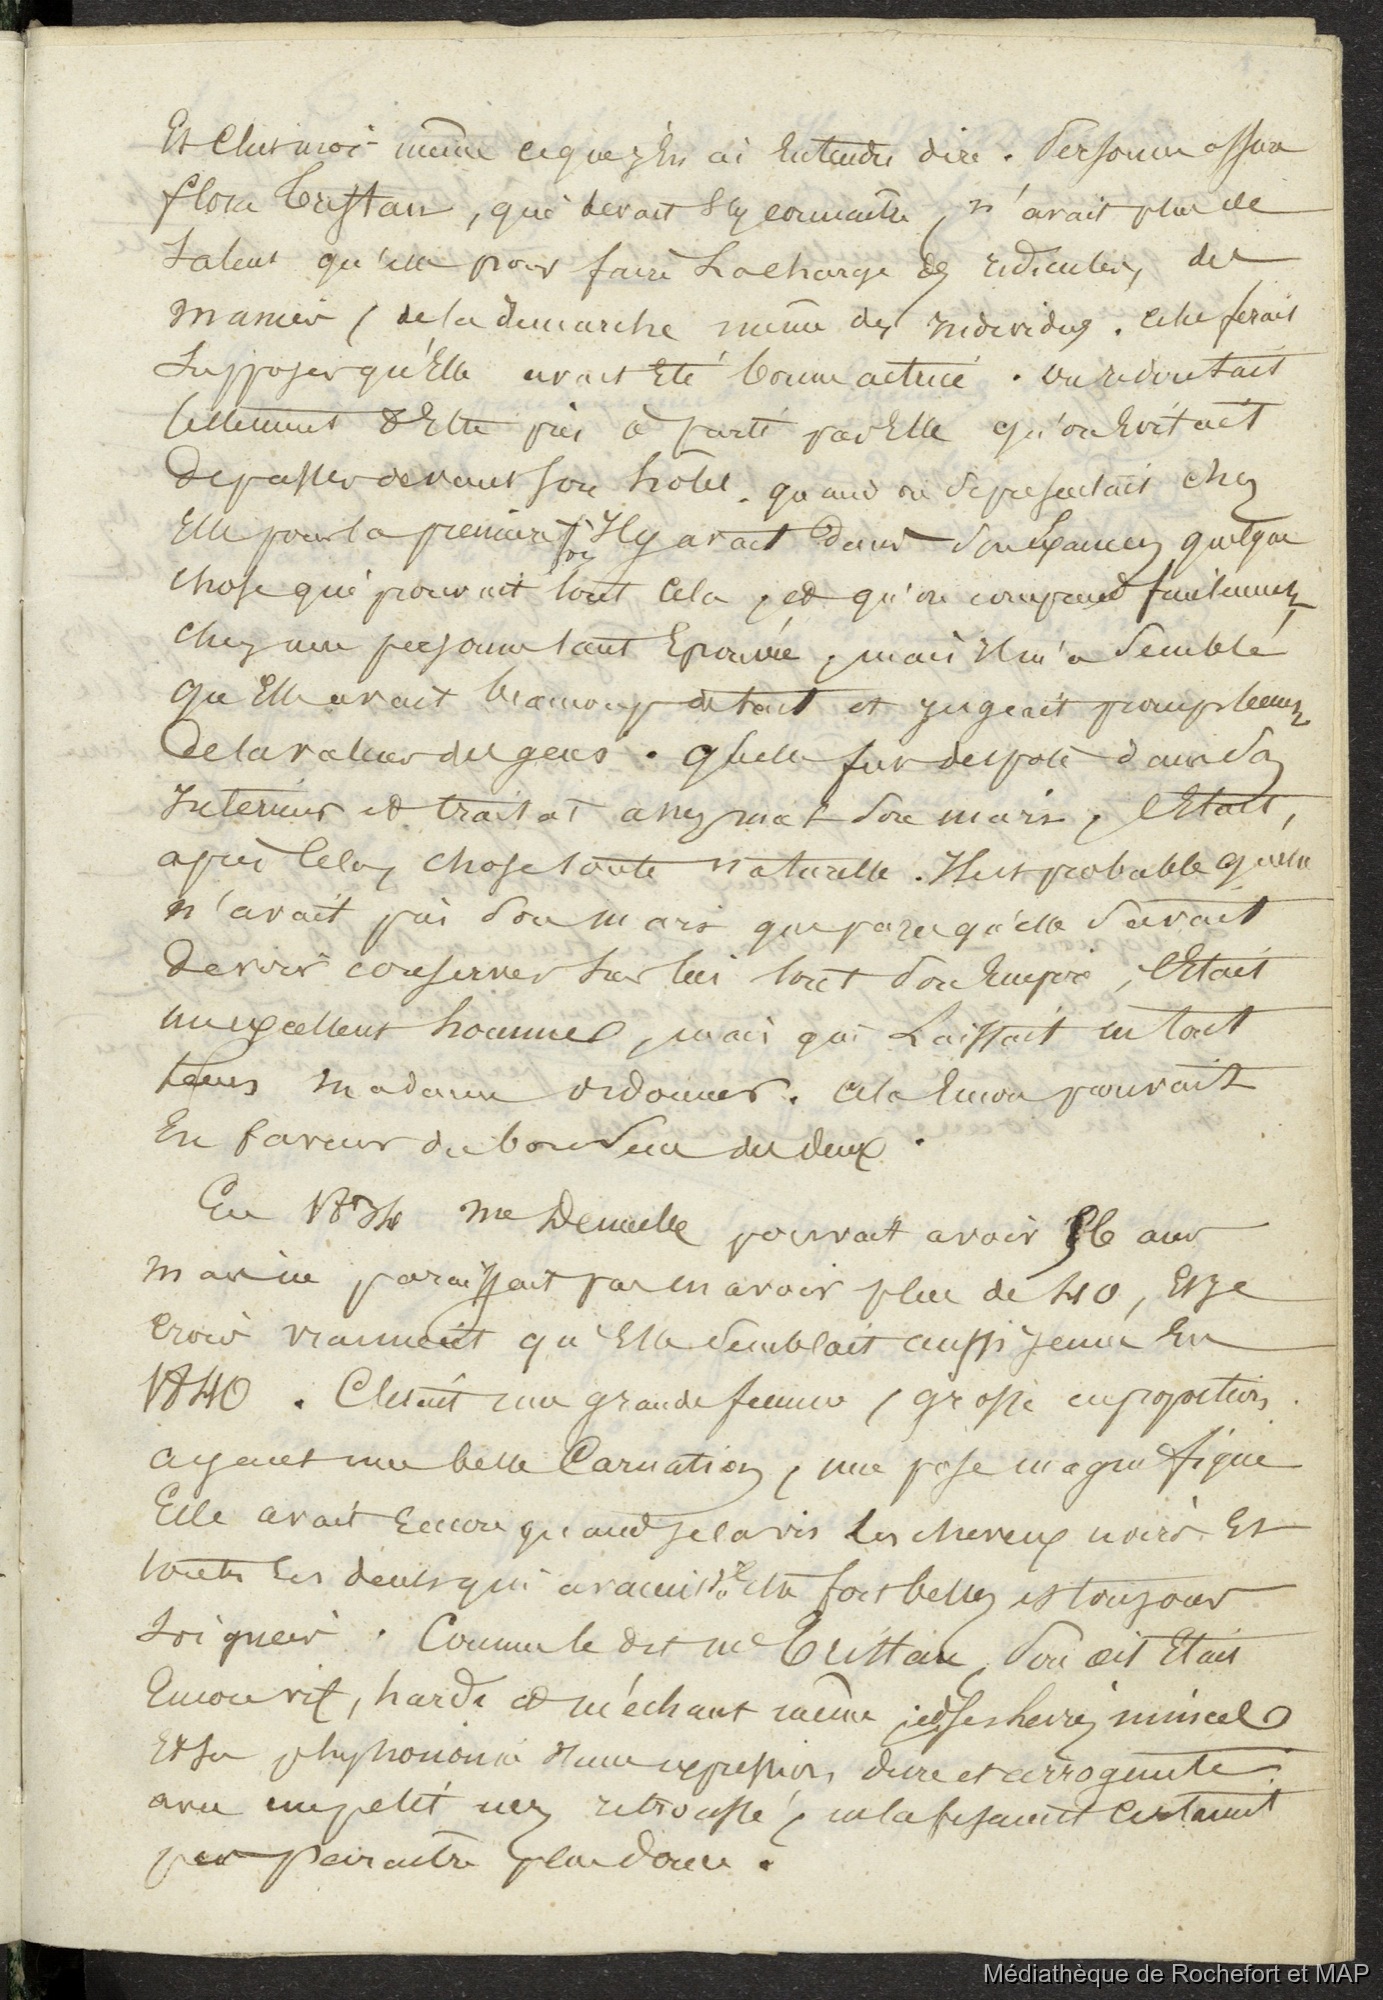 Et chez moi même ce que j'en ai entendu dire. Personne assura
flora Tristan, qui devait s'y connaitre, n'avait plus de
talent qu'elle pour faire la charge des ridicules, des
manies, de la démarche même des individus. Cela ferait
supposer qu'elle avait été bonne actrice. On redoutait
tellement d'Etre pris à parti par Elle qu'on Evitait
de passer devant son hôtel. quand on se presentait chez
Elle pour la premiere fois. Il y avait dans son Examen quelque
chose qui prouvait tout cela, et qu'on comprend facilement
chez une personne tant Eprouvée, mais il m'a semblé
qu'Elle avait beaucoup de tact et jugeait promptement
de la valeur des gens. Qu'elle fut despote dans son
interieur et traitat assez mal son mari, c'Etait,
après cela, chose toute naturelle. Il est probable qu'elle
n'avait pris son mari que parce qu'elle savait
devoir conserver sur lui tout son Empire, c'Etait
un excellent homme, mais qui laissait en tout
tems madame ordonner. Cela Encore prouvait
En faveur du bon sens des deux.
En 1834 Me Denuelle pouvait avoir 56 ans
mais ne paraissait pas en avoir plus de 40, Et je
crois vraiment qu'Elle semblait aussi jeune En
1840. C'Etait une grande femme, grosse en proportion
ayant une belle Carnation, une pose magnifique
Elle avait Encore quand je la vis les cheveux noirs Et
toutes les dents qui avaient dû être fort belles et toujours
soignées. Comme le dit Me Tristan, son œil Etait
Encore vif, hardi et méchant même, et ses lèvres minces
Et sa physionomie d'une expression dure et arrogante
avec un petit nez retroussé, ne la faisaient certainement
pas paraitre plus douce.
Médiathèque de Rochefort et MAP